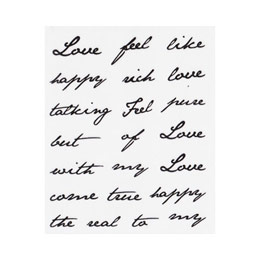 Love feel like
happy rich love
talking Feel pure
but of Love
with my Love
come true happy
the real to my